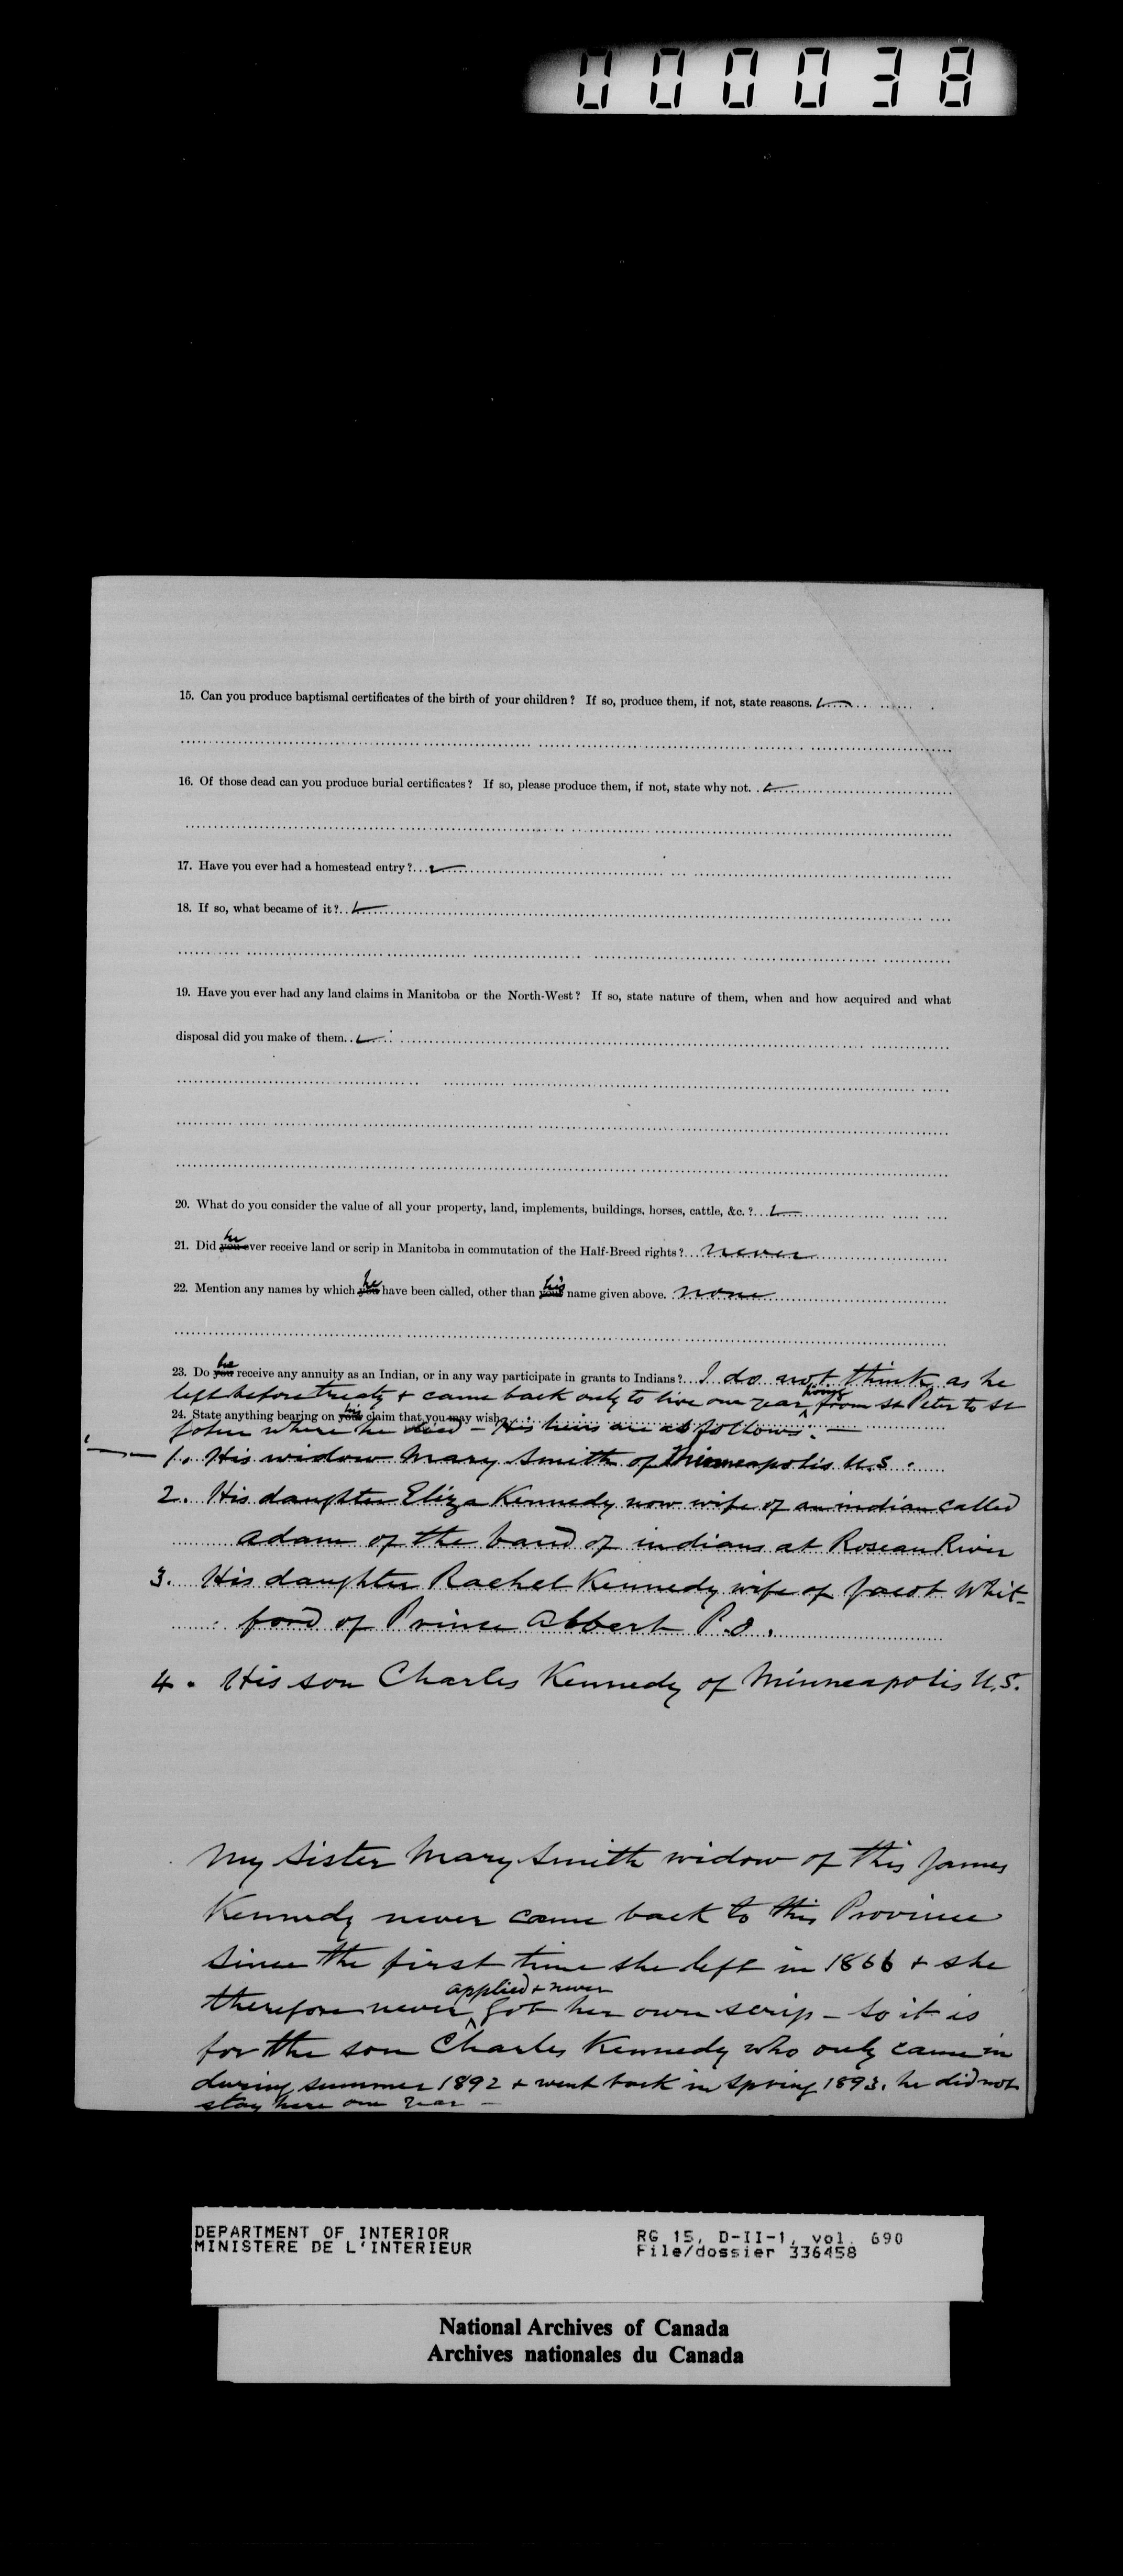 000038
15. Can you produce baptismal certificates of the birth of your children? If so, produce them, if not, state reasons.
16. Of those dead can you produce burial certificates? If so, please produce them, if not, state why not.
17. Have you ever had a homestead entry?
18. If so, what became of it?
19. Have you ever had any land claims in Manitoba or the North-West? If so, state nature of them, when and how acquired and what
disposal did you make of them.
20. What do you consider the value of all your property, land, implements, buildings, horses, cattle, &c.?
he
21. Did you ever receive land or scrip in Manitoba in commutation of the Half-Breed rights? never
he his
22. Mention any names by which you have been called, other than your name given above. none
he
23. Do you receive any annuity as an Indian, or in any way participate in grants to Indians? I do not think as he
left before treaty & came back only to live one year from St Peter to St
his
24. State anything bearing on your claim that you may wish.
John where he died - His heirs are as follows: —
1. His widow Mary Smith of Minneapolis U.S.
2. His daughter Eliza Kennedy now wife of an indian called
adam of the band of indians at Roseau River
3. His daughter Rachel Kennedy wife of Jacob Whit-
ford of Prince Albert P.O.
4. His son Charles Kennedy of Minneapolis U.S.
My sister Mary Smith widow of this James
Kennedy never came back to this Province
since the first time she left in 1866 & she
applied & never
therefore never got her own scrip - so it is
for the son Charles Kennedy who only came in
during summer 1892 & went back in spring 1893. he did not
stay here one year -
DEPARTMENT OF INTERIOR
MINISTERE DE L'INTERIEUR
RG 15, D-II-1, vol. 690
File/dossier 336458
National Archives of Canada
Archives nationales du Canada